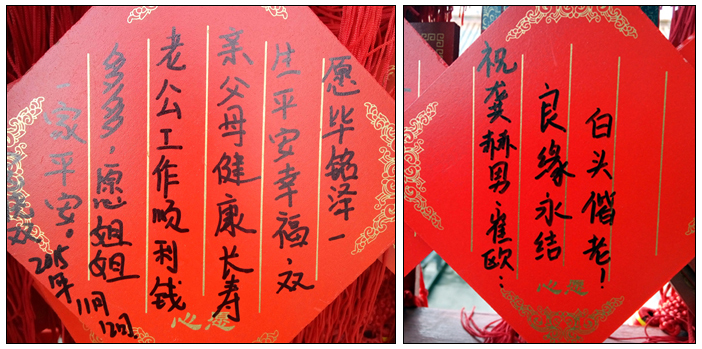 愿毕铭泽一
生平安幸福,双
亲父母健康长寿
老公工作顺利钱
多多,愿姐姐
一家平安。
双
2015年
11月
12日.
心愿
祝龚赫男、崔欧:
良缘永结
白头偕老!
心愿